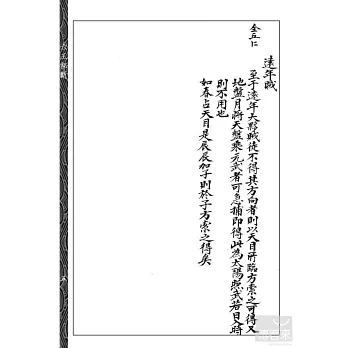 全五仁
遠年賊
至于遠年大夥賊徒不得其方向者則以天目所臨方索之可得又
地盤月將天盤乘元武者可急捕即得此為太陽照武若日入時
則不用也
如春占天目是辰辰加子則於子方索之得矣